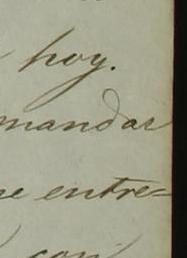 hoy.
mandar
entre=
con